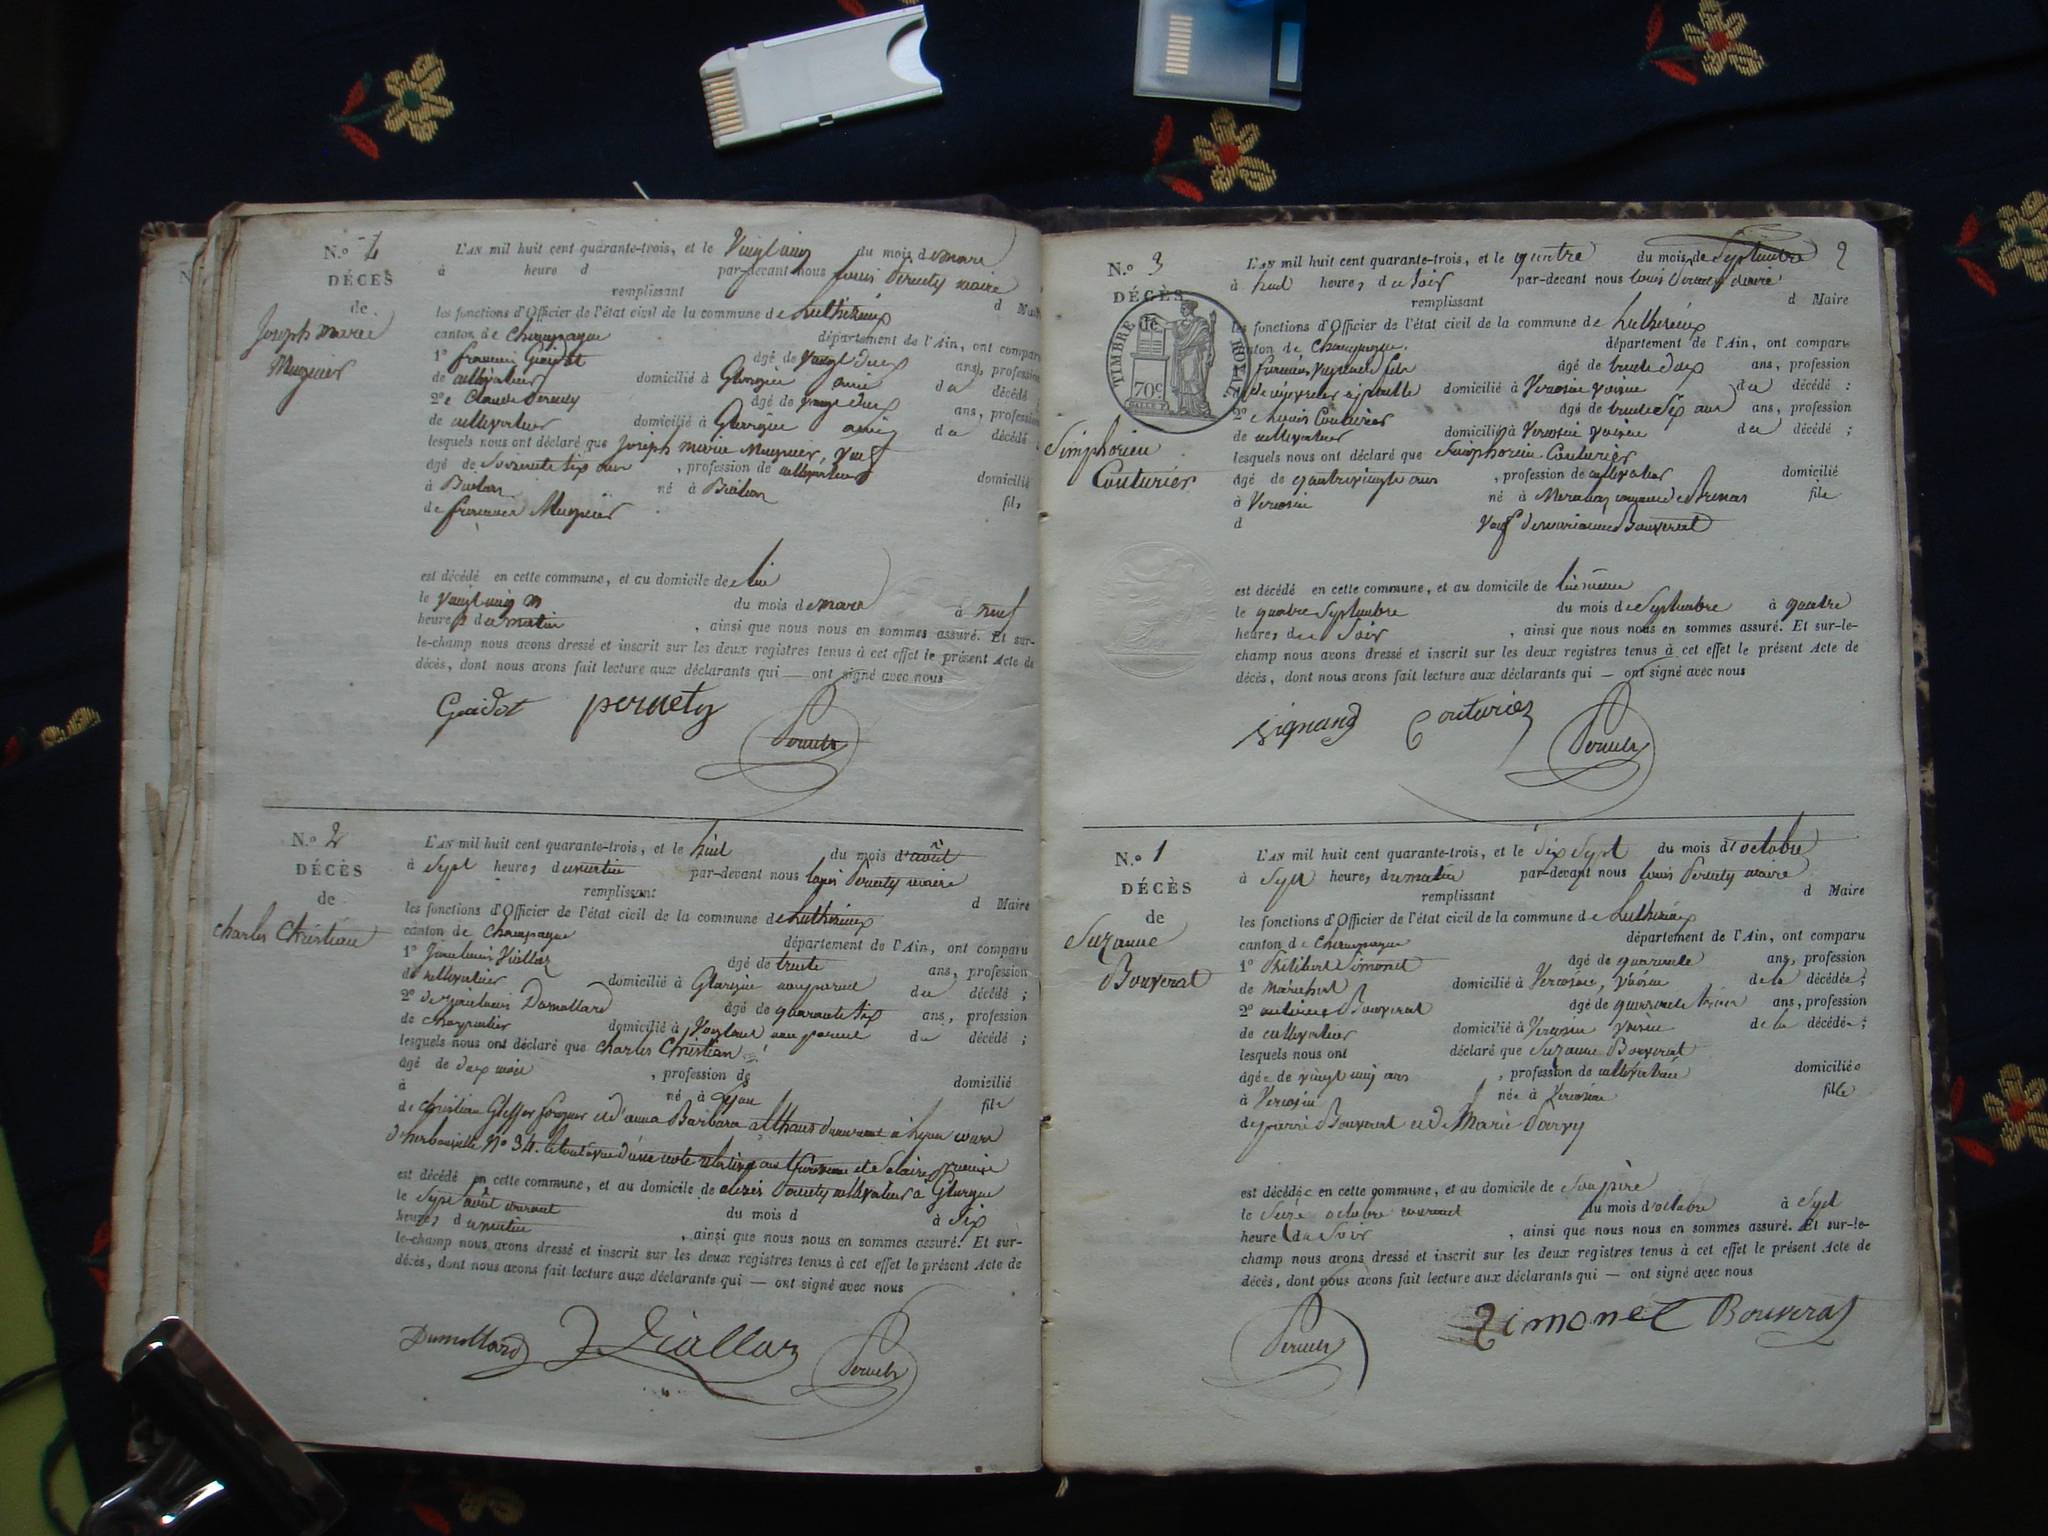 N.º 1
DÉCÈS
de
Joseph marie
Mugnier
L'AN mil huit cent quarante-trois, et le Vingt cinq du mois de mars
à heure d par-devant nous louis Pernety maire
remplissant d Maire
les fonctions d'Officier de l'état civil de la commune de Luthézieux
canton de Champagne département de l'Ain, ont comparu
1º françois Guidot âgé de Vingt deux ans, profession
de cultivateur domicilié à Glargin ami du décédé ;
2º Claude Pernety âgé de ans, profession
de cultivateur domicilié à Glargin ami du décédé ;
lesquels nous ont déclaré que Joseph marie Mugnier, Veuf
âgé de Soixante six ans , profession de cultivateur domicilié
à né à fils
de françois Mugnier
est décédé en cette commune, et au domicile de lui
le Vingt cinq du mois de mars à neuf
heures du matin , ainsi que nous nous en sommes assuré. Et sur-
le-champ nous avons dressé et inscrit sur les deux registres tenus à cet effet le présent Acte de
décès, dont nous avons fait lecture aux déclarants qui — ont signé avec nous
Guidot pernety Pernety
N.º 2
DÉCÈS
de
charles Christian
L'AN mil huit cent quarante-trois, et le huit du mois d'août
à Sept heures du matin par-devant nous louis Pernety maire
remplissant d Maire
les fonctions d'Officier de l'état civil de la commune de Luthézieux
canton de Champagne département de l'Ain, ont comparu
1º Jean louis Viallaz âgé de trente ans, profession
de cultivateur domicilié à Glargin non parent du décédé ;
2º Dumollard âgé de quarante six ans, profession
de charpentier domicilié à non parent du décédé ;
lesquels nous ont déclaré que charles Christian
âgé de deux mois , profession de domicilié
à né à Lyon fils
de christian et d'anna Barbara althaus demeurant à Lyon cours
d'herbouville Nº 34.
est décédé en cette commune, et au domicile de Pernety cultivateur à Glargin
le Sept août courant du mois d à Six
heures du matin , ainsi que nous nous en sommes assuré. Et sur-
le-champ nous avons dressé et inscrit sur les deux registres tenus à cet effet le présent Acte de
décès, dont nous avons fait lecture aux déclarants qui — ont signé avec nous
Dumollard Viallaz Pernety
2
N.º 3
DÉCÈS
TIMBRE ROYAL
70c.
Simphorien
Couturier
L'AN mil huit cent quarante-trois, et le quatre du mois de Septembre
à huit heures du Soir par-devant nous louis Pernety maire
remplissant d Maire
les fonctions d'Officier de l'état civil de la commune de Luthézieux
canton de Champagne. département de l'Ain, ont comparu
âgé de trente deux ans, profession
domicilié à Vercosin voisin du décédé ;
2º Louis Couturier âgé de trente Six ans ans, profession
de cultivateur domicilié à Vercosin voisin du décédé ;
lesquels nous ont déclaré que Simphorien Couturier
âgé de quatrevingts ans , profession de cultivateur domicilié
à Vercosin né à commune de Brenas fils
d Veuf de marianne Bouverat
est décédé en cette commune, et au domicile de lui même
le quatre Septembre du mois de Septembre à quatre
heures du Soir , ainsi que nous nous en sommes assuré. Et sur-le-
champ nous avons dressé et inscrit sur les deux registres tenus à cet effet le présent Acte de
décès, dont nous avons fait lecture aux déclarants qui — ont signé avec nous
Vignand Couturier Pernety
N.º 1
DÉCÈS
de
Suzanne
Bouverat
L'AN mil huit cent quarante-trois, et le dix Sept du mois d'octobre
à Sept heures du matin par-devant nous louis Pernety maire
remplissant d Maire
les fonctions d'Officier de l'état civil de la commune de Luthézieux
canton de Champagne département de l'Ain, ont comparu
1º Philibert Simonet âgé de quarante ans, profession
de Maréchal domicilié à Vercosin, Voisin de la décédée ;
2º antoine Bouverat âgé de quarante ans, profession
de cultivateur domicilié à Vercosin voisin de la décédée ;
lesquels nous ont déclaré que Suzanne Bouverat
âgée de vingt cinq ans , profession de cultivatrice domiciliée
à Vercosin née à Vercosin fille
de pierre Bouverat et de Marie
est décédée en cette commune, et au domicile de Son père
le Seize octobre courant du mois d'octobre à Sept
heure du Soir , ainsi que nous nous en sommes assuré. Et sur-le-
champ nous avons dressé et inscrit sur les deux registres tenus à cet effet le présent Acte de
décès, dont nous avons fait lecture aux déclarants qui — ont signé avec nous
Pernety Simonet Bouverat